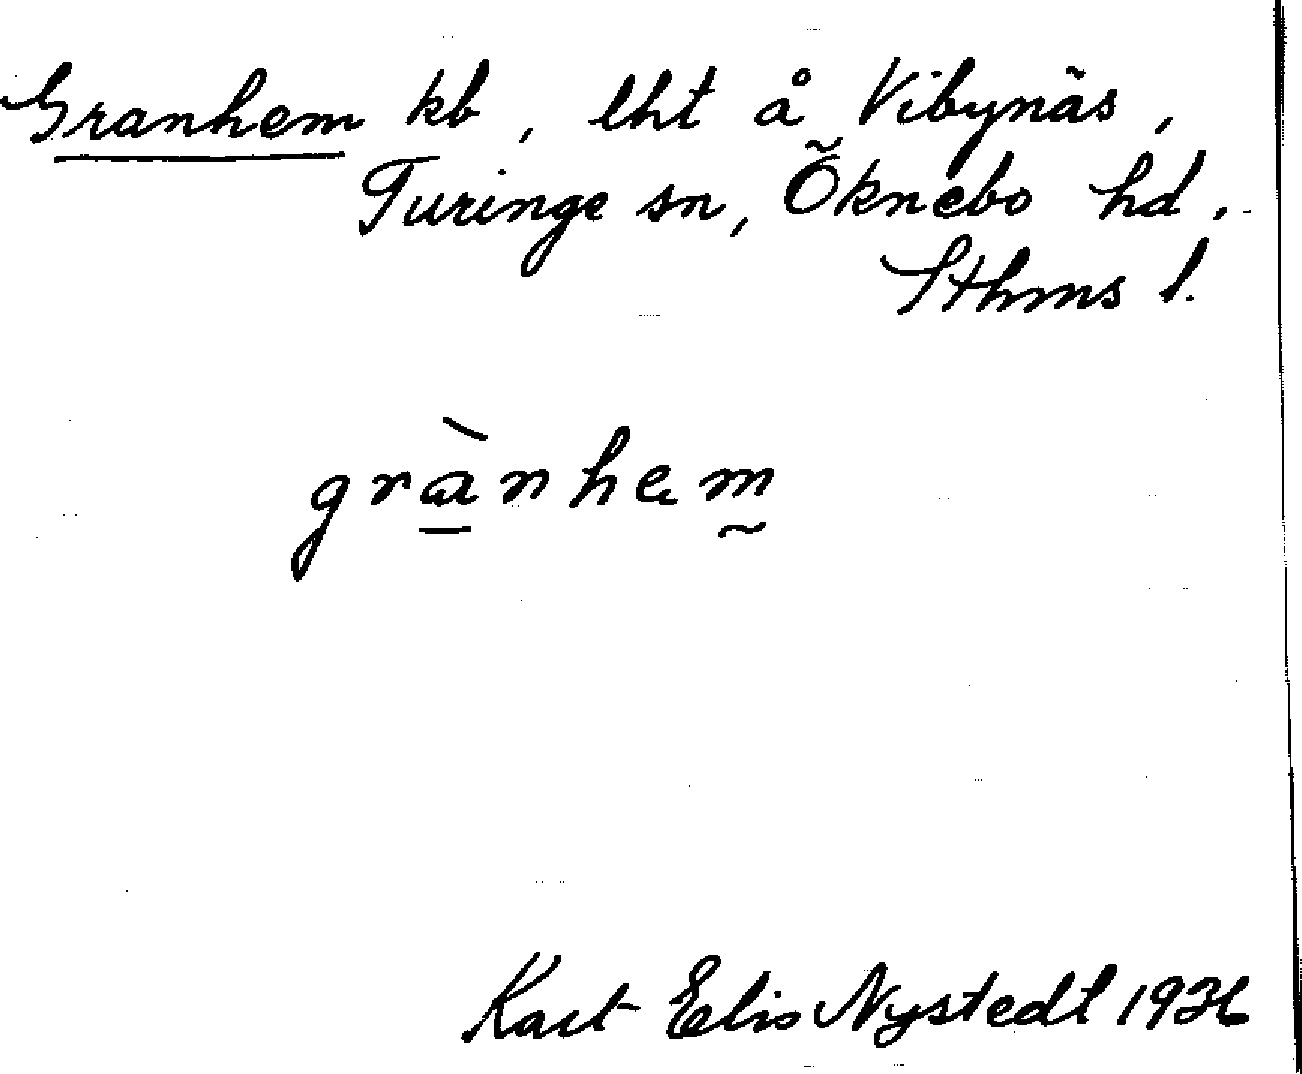 Granhem kb, lht å Vibynäs,
Turinge sn, Öknebo hd,
Sthms l.
grànhem
Kart Elis Nystedt 1936